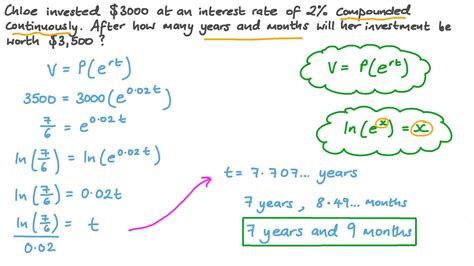 Chloe invested $3000 at an interest rate of 2% compounded
continuously. After how many years and months will her investment be
worth $3,500?
V = P(e^rt)
3500 = 3000(e^0.02t)
7/6 = e^0.02t
ln(7/6) = ln(e^0.02t)
ln(7/6) = 0.02t
ln(7/6)/0.02 = t
V = P(e^rt)
ln(e^x) = x
t = 7.707... years
7 years, 8.49... months
7 years and 9 months